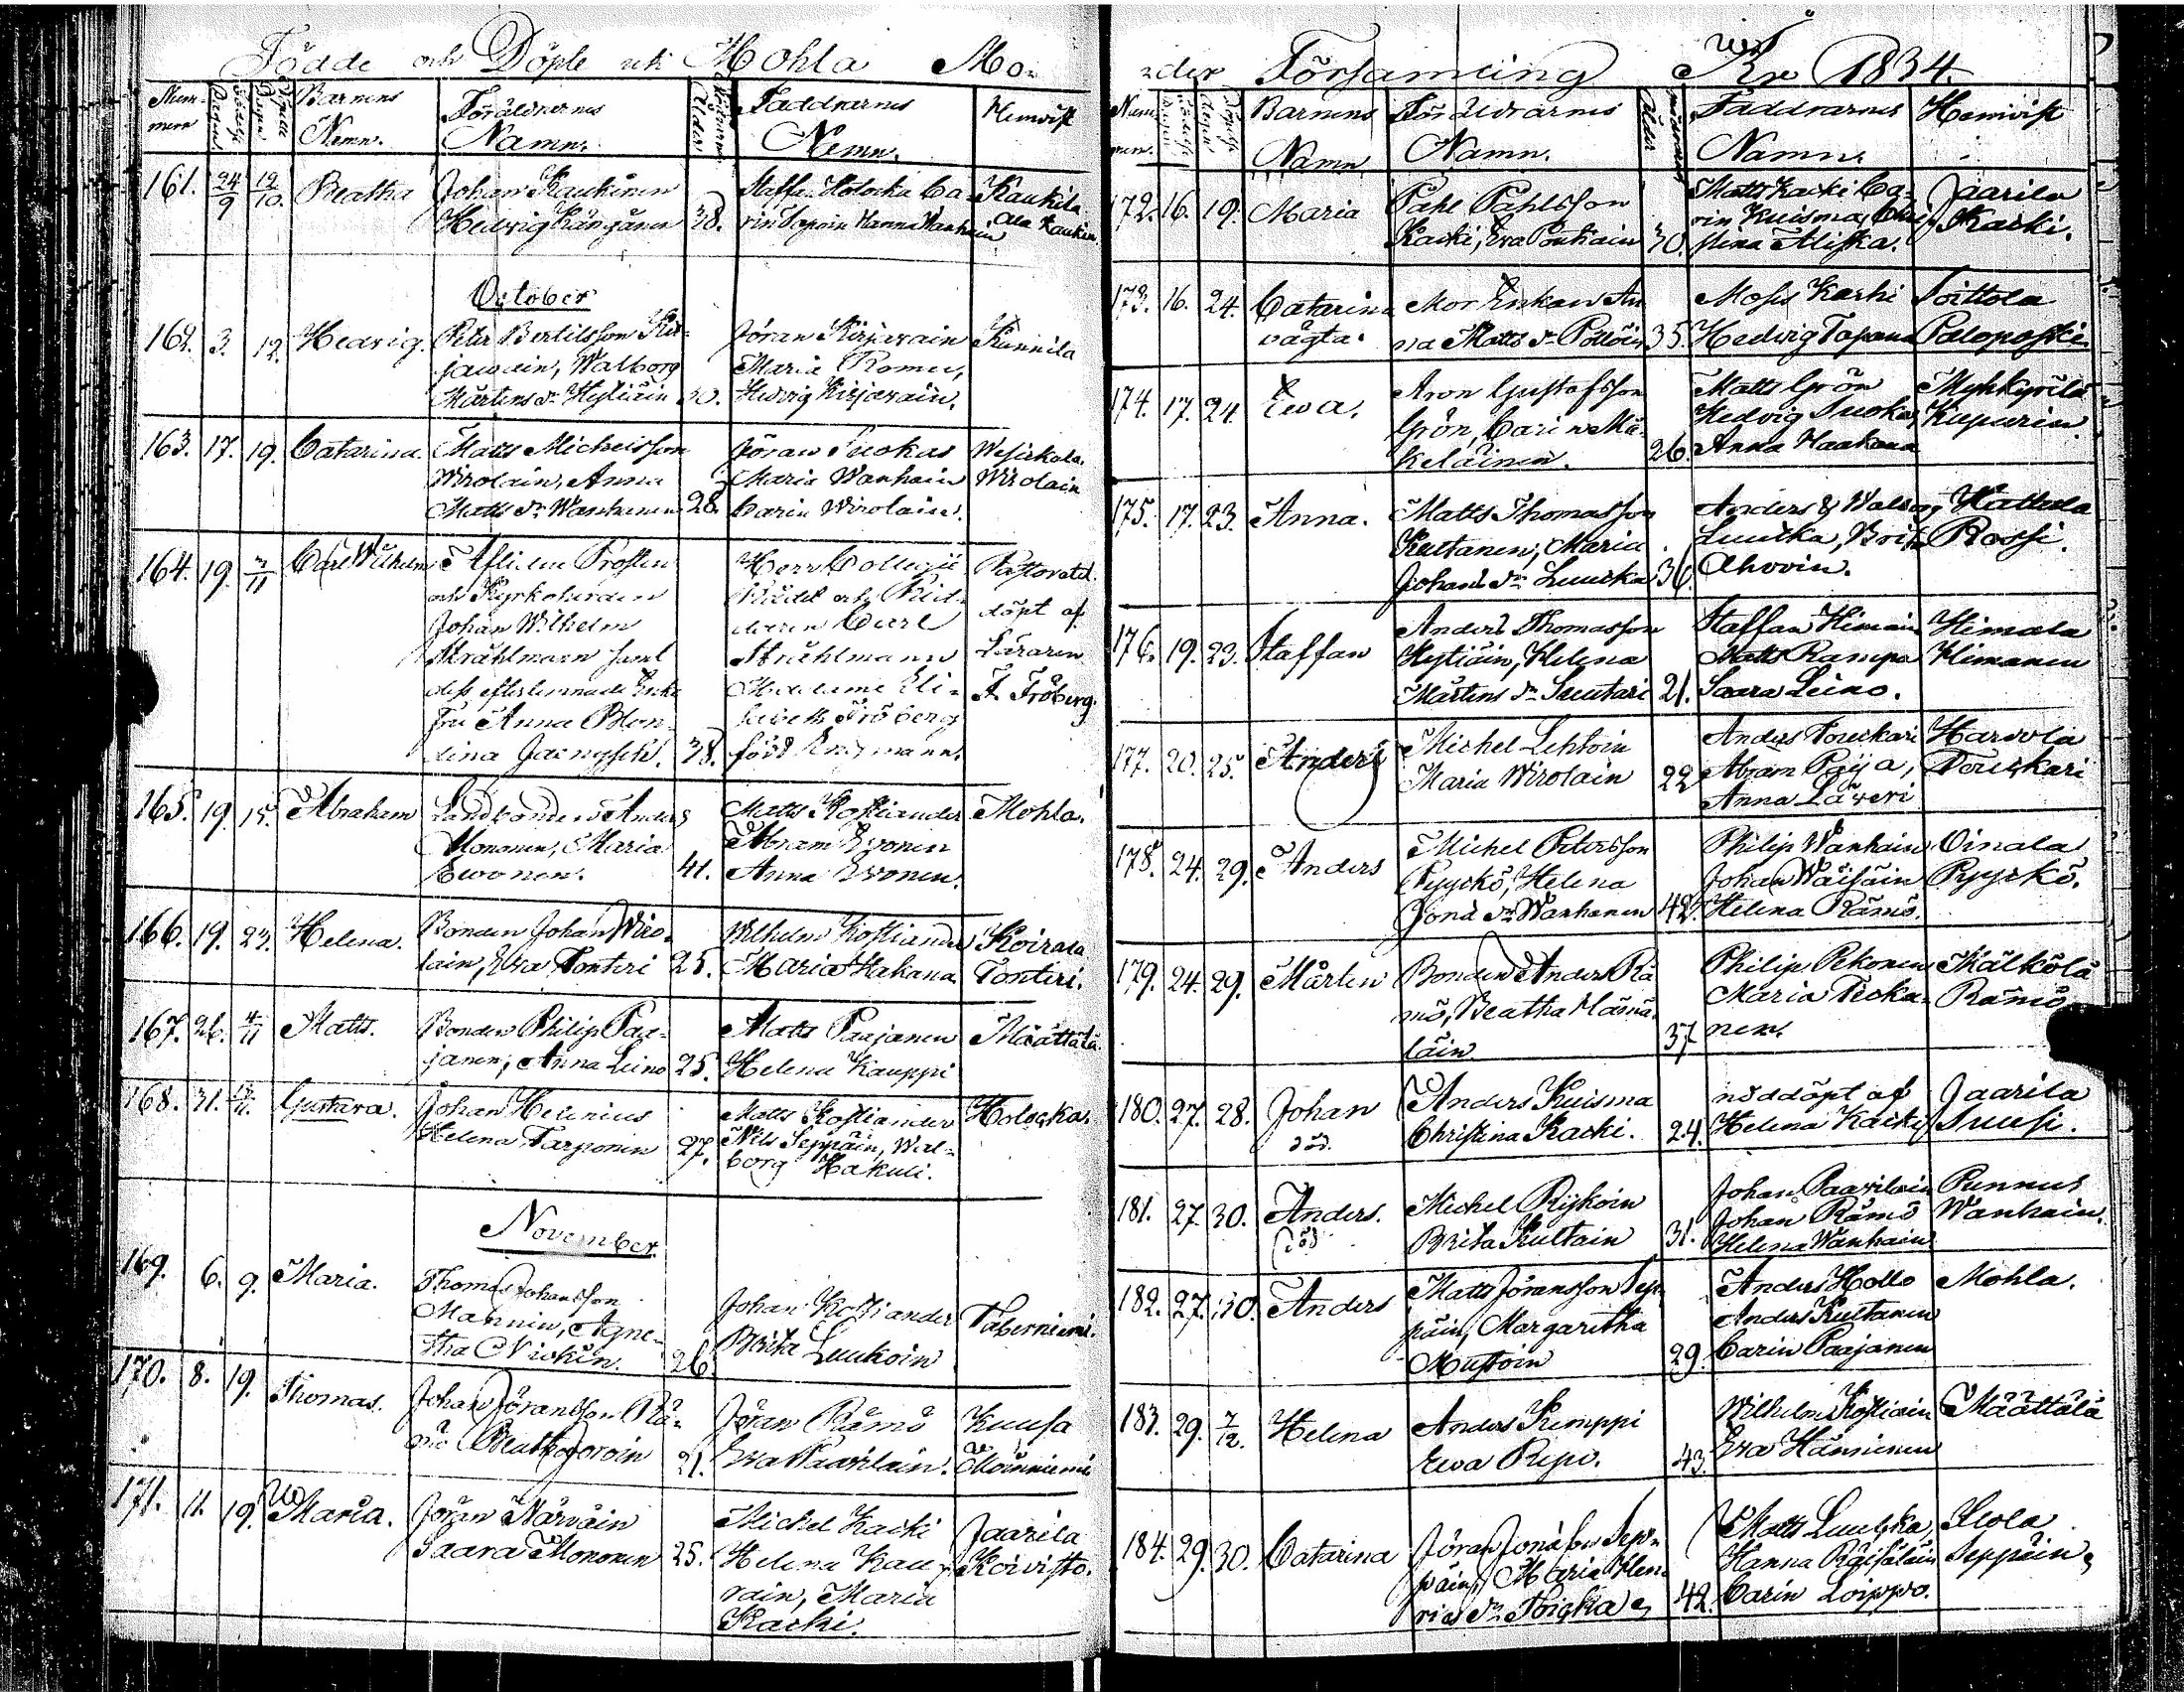 Födde och Döpte uti Mohla Mo-
Num-
mern
Barnens
Namn.
Föräldrarnes
Namn.
Ålder
Faddrarnes
Namn.
Hemvist
161. 24/9 12/10. Beatha Johan Kaukinen
Hedvig Kangänen 38.
Staffan Holocka Ca-
rin Toposin Hanna Wanhain
Kaukila
October
162. 3. 12. Hedvig. Petter Bertilsson Kir-
javain, Walborg
Mårtens dr Hytiäin 30.
Jöran Kirjavain
Maria Romu,
Hedvig Kirjavain.
Kunnila
163. 17. 19. Catarina. Matts Michelsson
Wirolain, Anna
Matts dr Wanhanen 28.
Jöran Suokas
Maria Wanhain
Carin Wirolain.
Wesikkala.
Wirolain
164. 19. 7/11 Carl Wilhelm Afledne Prosten
och Kyrkoherden
Johan Wilhelm
Strählmann samt
dess efterlemnade Enka
Fru Anna Blon-
dina Jaenysch. 38.
Herr Collegii
Rådet och Rid-
daren Carl
Strählmann
Madame Eli-
sabeth Fröberg
född Engmann.
Pastoratet
döpt af
Läraren
A Fröberg.
165. 19. 15. Abraham Landbonden Anders
Mononen, Maria
Ewonen. 41.
Matts Kostiander
Abram Evonen
Anna Evonen.
Mohla.
166. 19. 23. Helena. Bonden Johan Wiro-
lain, Eva Tonteri 25.
Wilhelm Kostiander
Maria Hakana
Koirala
Tonteri.
167. 26. 4/11 Matts. Bonden Philip Paa-
janen, Anna Leino 25.
Matts Paajanen
Helena Kauppi
Määttälä.
168. 31. Gustava. Johan Helenius
Helena Tarponen 27.
Matts Kostiander
Nils Seppäin, Wal-
borg Hakuli.
Holocka.
November
169. 6. 9. Maria. Thomas Johansson
Mannin, Agne-
tha Niokin. 26.
Johan Kostiander
Brita Luukoin
Taberniemi.
170. 8. 19. Thomas. Johan Jöransson Rä-
mö Beatha 21.
Jöran Rämö
Eva Paavilain.
Kuusa
171. 11. 19. Maria. Jöran Närväin
Saara Mononen 25.
Michel Kacki
Helena Kau-
rain, Maria
Kacki.
Jaarila
Koivisto.
nder Församling År 1834.
Num-
mern.
Barnens
Namn
Föräldrarnes
Namn.
Ålder
Faddrarnes
Namn.
Hemvist
172. 16. 19. Maria Pahl Pahlsson
Kacki, Eva Pontiain 30.
Matts Kacki Ca-
rin Kuisma, Chri-
stina Aliska.
Jaarila
Kacki.
173. 16. 24. Catarina
oägta.
Mor Enkan An
na Matts dr Pöllöin 35.
Moses Karhi
Hedvig Tapana
Soittola
Paloposki
174. 17. 24. Ewa. Aron Gustafsson
Grön, Carin Mä-
keläinen. 26.
Matts Grön
Hedvig Suoka,
Anna Haakana
Myhkyrilä
Kuparin.
175. 17. 23. Anna. Matts Thomasson
Kultanen, Maria
Johans dr Luucka 36.
Anders &
Luucka, Brita
Ahvoin.
Hattula
Rossi.
176. 19. 23. Staffan Anders Thomasson
Hytiäin, Helena
Mårtens dr Suutari 21.
Staffan Himain
Matts Rampa
Saara Leino.
Himala
Himanen
177. 20. 25. Anders Michel Lehtoin
Maria Wirolain 22
Anders Touckari
Abram Paija,
Anna Läveri
Harvola
Touckari
178. 24. 29. Anders Michel Petersson
Pyyckö, Helena
Jonä dr Wanhanen 42.
Philip Wanhain
Johan Wäisäin
Helena Rämö.
Oinala
Pyyckö.
179. 24. 29. Mårten Bonden Anders Rä
mö, Beatha Hämä-
läin 37
Philip Pekonen
Maria Teoka-
nen.
Kälkölä
Rämö
180. 27. 28. Johan
död.
Anders Kuisma
Christina Kacki. 24.
nöddöpt af
Helena Kacki
Jaarila
Suusi.
181. 27. 30. Anders.
död
Michel Ryhoin
Brita Kultain 31.
Johan Paavilain
Johan Rämö
Helena Wanhain
Punnus
Wanhain.
182. 27. 30. Anders Matts Jöransson Sep-
päin, Margaretha
Mustoin 29.
Anders Hollo
Anders Kultanen
Carin Paajanen
Mohla.
183. 29. 7/12. Helena Anders Kemppi
Ewa Repo. 43.
Wilhelm Kostiain
Eva Hänninen
Määttälä
184. 29. 30. Catarina Jöran Jonasson Sep-
päin, Maria Hen-
rics dr Thoicka 42.
Matts Luucka,
Hanna Räisäläin
Carin Loippo.
Ilola
Seppäin